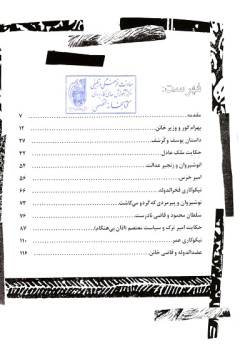 فهرست:
مقدمه ۷
بهرام گور و وزیر خائن ۱۲
داستان یوسف و گرسفد ۲۷
حکایت ملک عادل ۴۲
انوشیروان و زنجیر عدالت ۵۲
امیر خرس ۵۶
نیکوکاری فخرالدوله ۶۶
نوشیروان و پیرمردی که گردو می‌کاشت ۷۳
سلطان محمود و قاضی نادرست ۷۶
حکایت امیر ترک و سیاست معتصم (اذان بی‌هنگام) ۸۷
نیکوکاری عمر ۱۱۰
عضدالدوله و قاضی خائن ۱۱۶